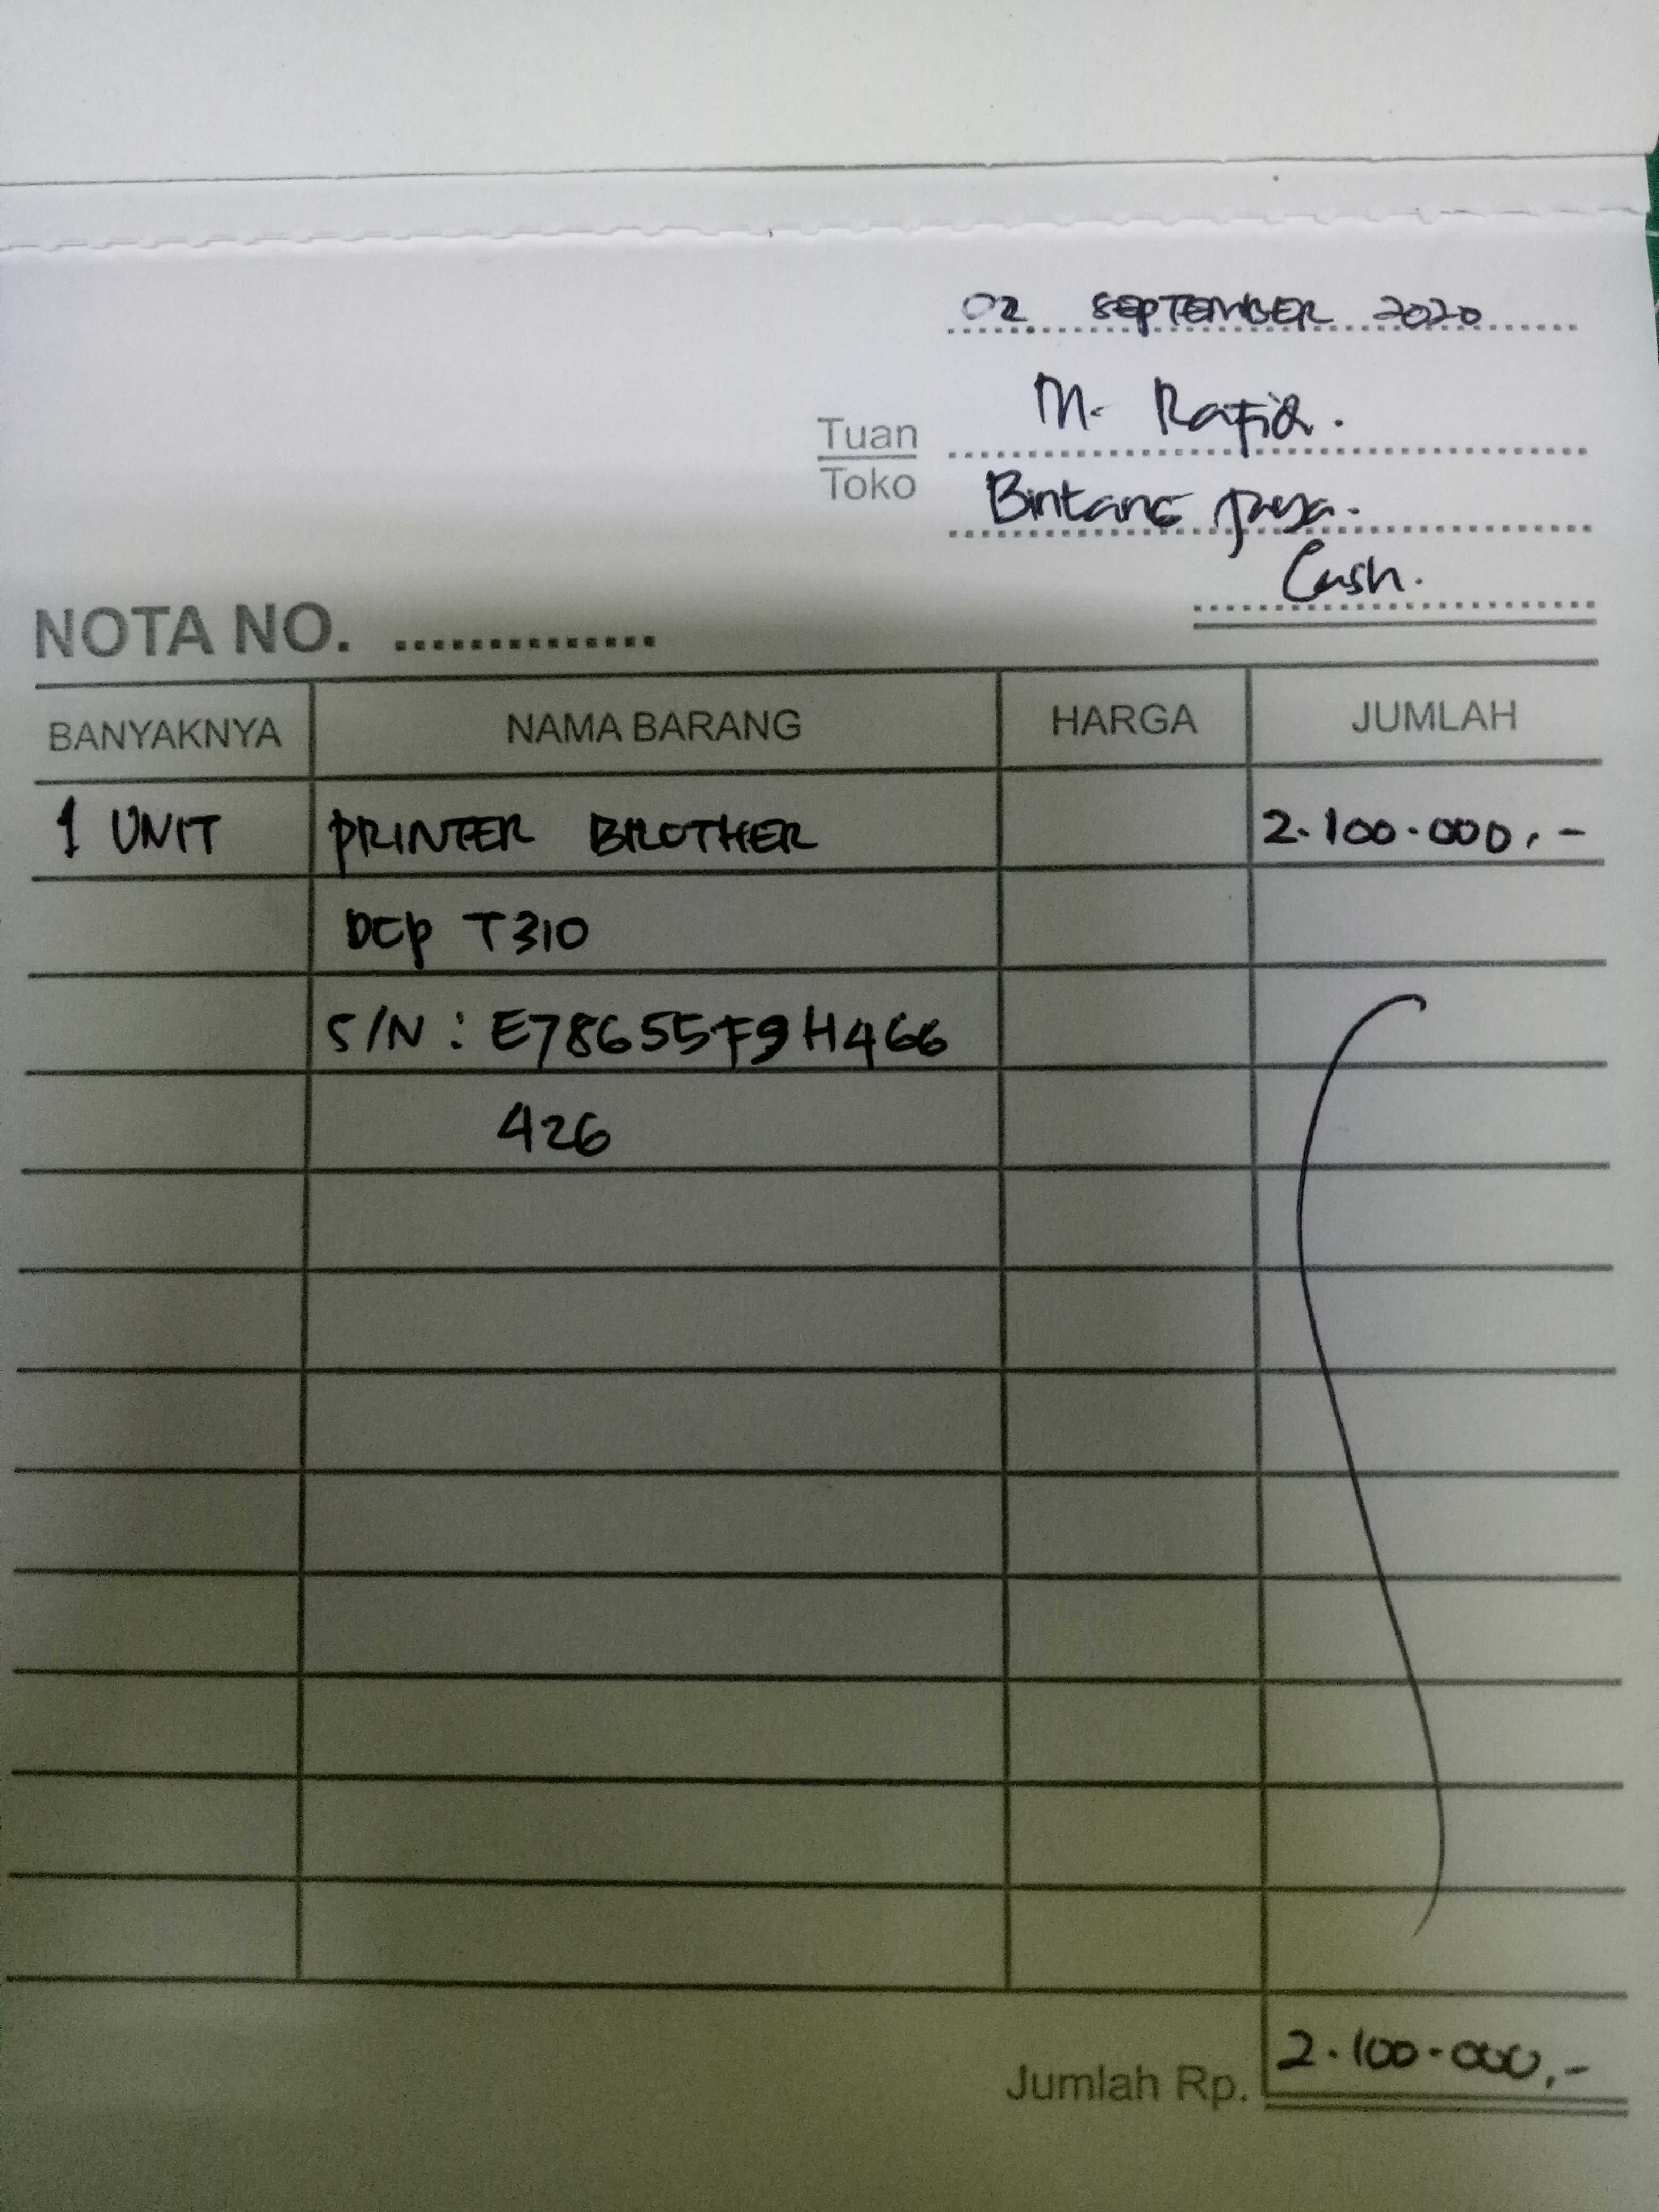 02 SEPTEMBER 2020
Tuan M. Rafiq.
Toko Bintang Jaya.
Cash.
NOTA NO. ..............
BANYAKNYA NAMA BARANG HARGA JUMLAH
1 UNIT PRINTER BROTHER 2.100.000,-
DCP T310
S/N : E78655F9H466
426
Jumlah Rp. 2.100.000,-